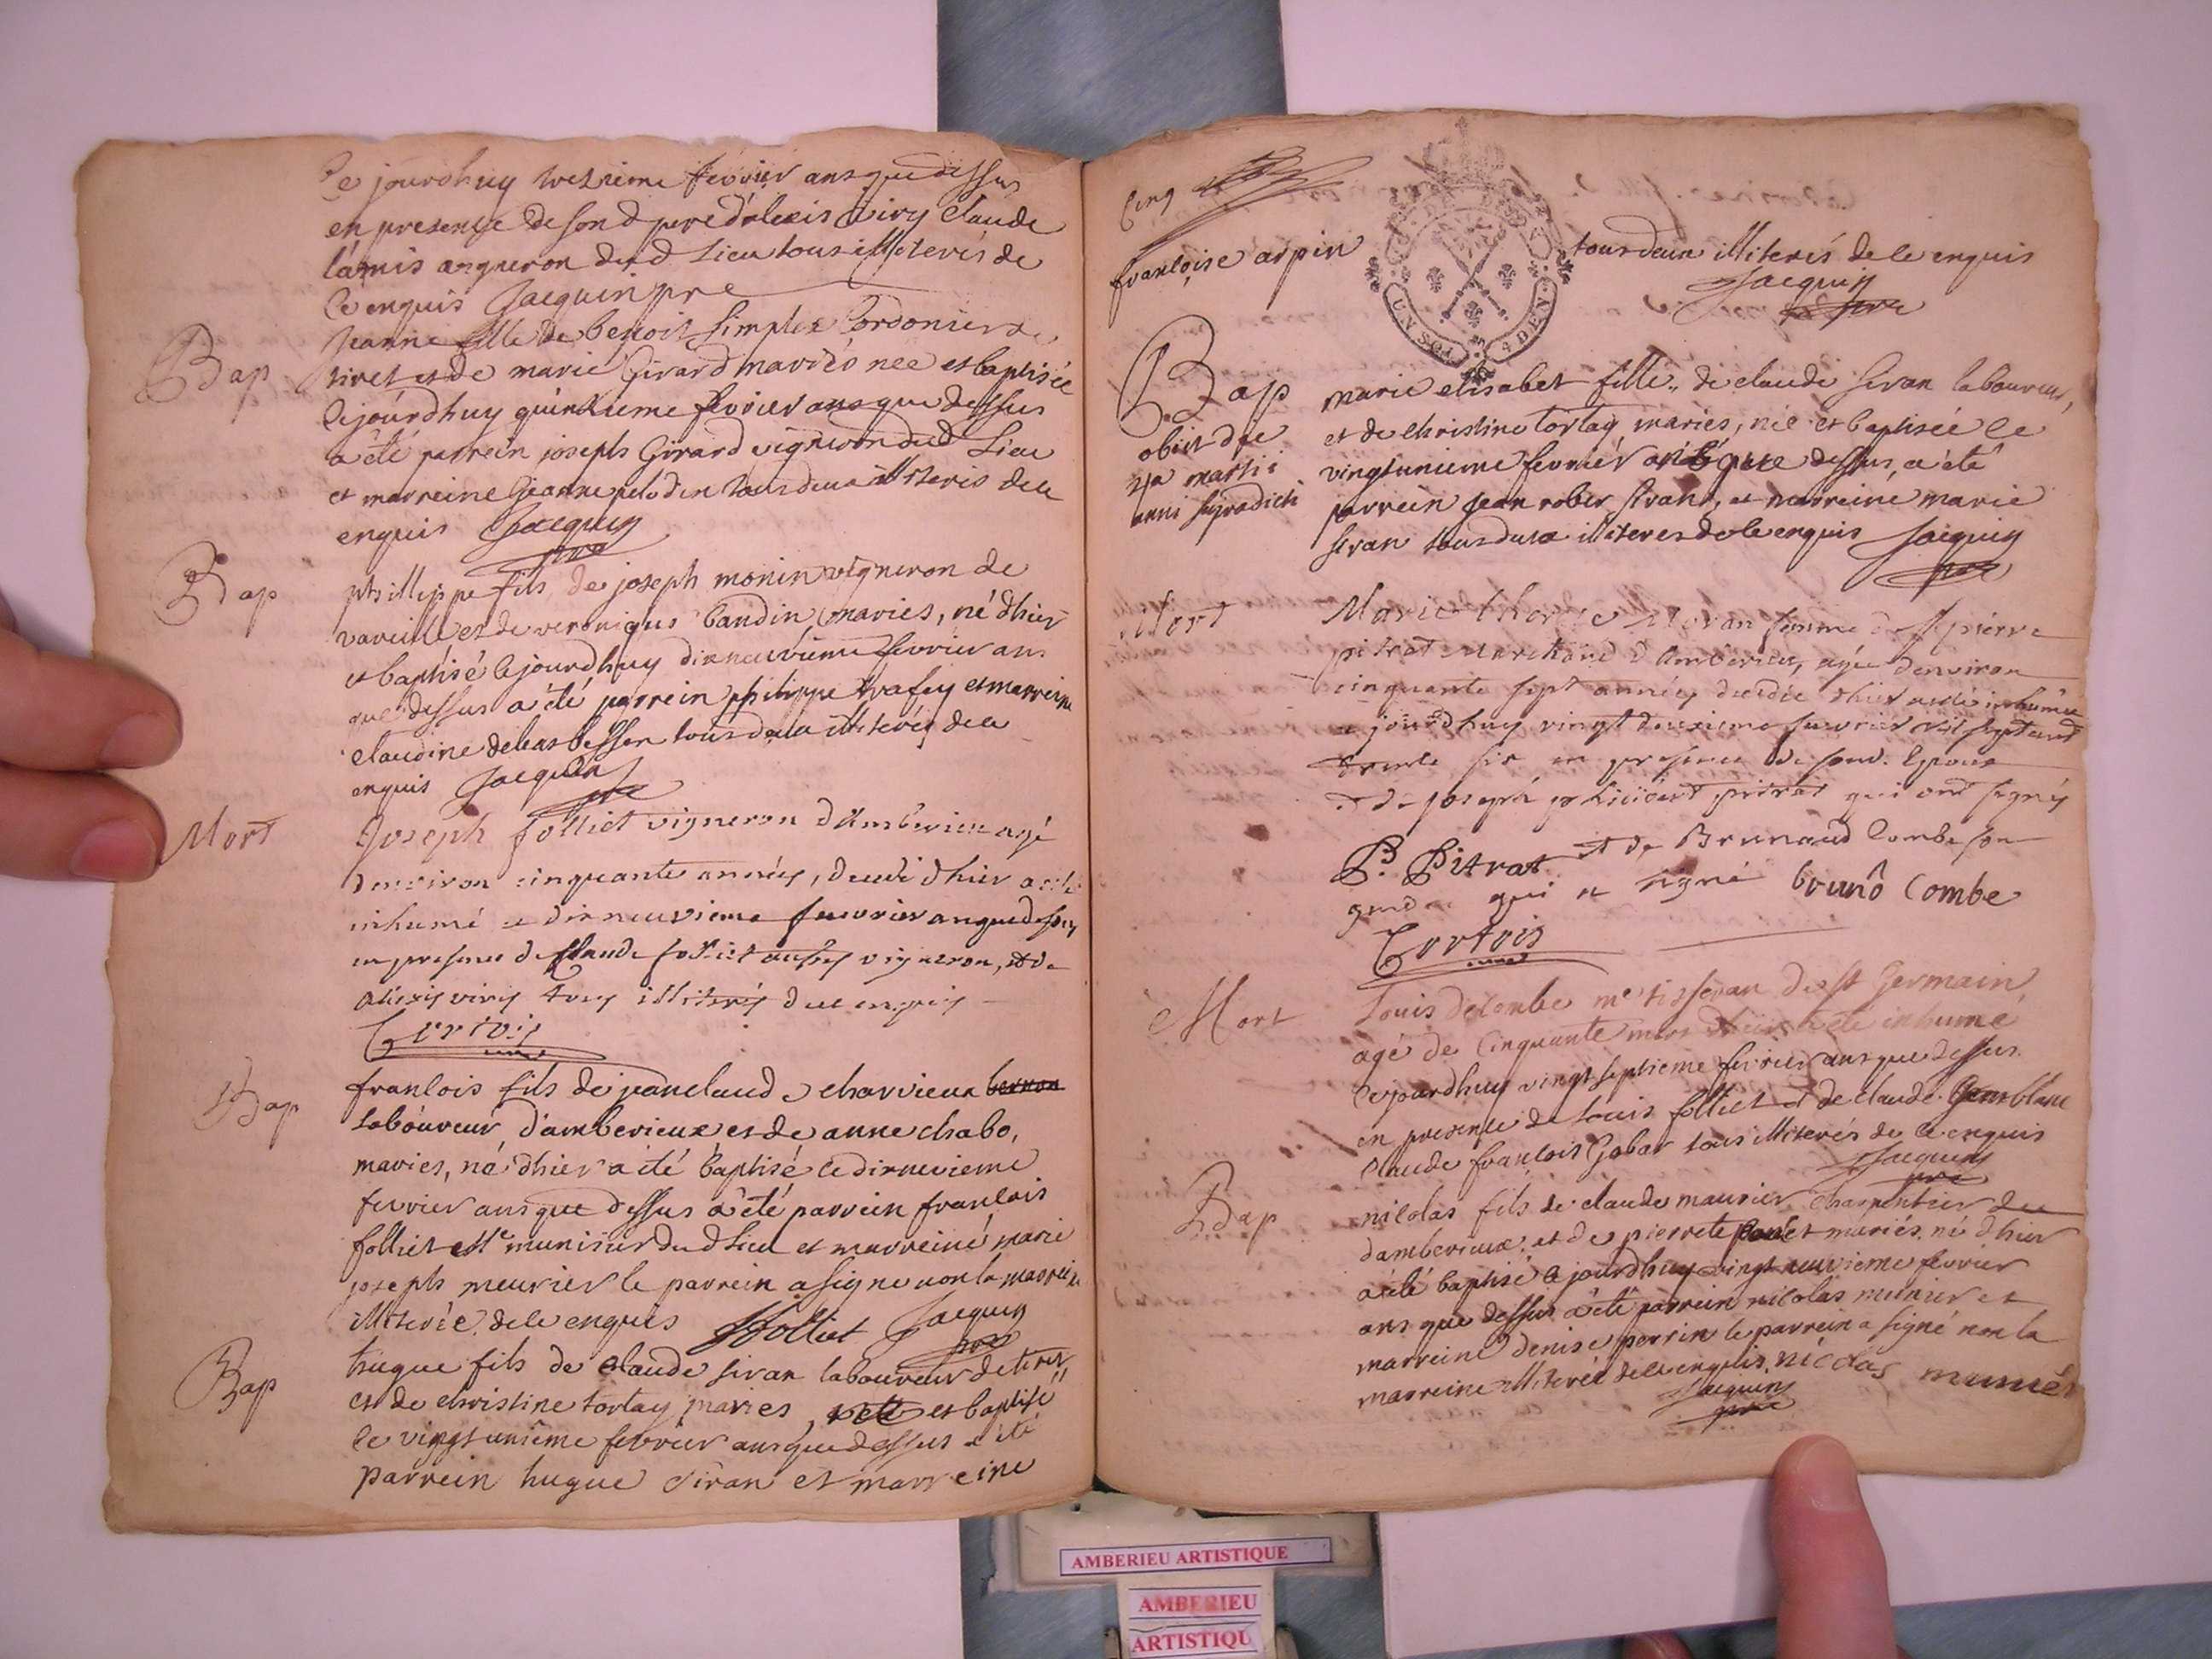 Ce jourdhuy treisieme fevrier ans que dessus
en presence de son d pere d'alexis viry Claude
lamis vigneron dud Lieu tous illiterés de
Ce enquis Jacquin pre
Bap
Jeanne fille de benoit simplex Cordonier de
tiret et de marie Girard mariés née et baptisée
Cejourdhuy quinsieme fevrier ans que dessus
a été parrein joseph Girard vigneron dud Lieu
et marreine Jeanne tous deux illiteris de ce
enquis Jacquin
pre
Bap
phillippe fils de joseph monin vigneron de
vareille et de veronique baudin mariés, né d'hier
et baptisé Cejourdhuy dixneuvieme fevrier ans
que dessus a été parrein philippe trafay et marreine
Claudine tous deux illiterés de ce
enquis Jacquin
pre
Mort
Joseph folliet vigneron d'Amberieu agé
denviron cinquante années, decedé d'hier a été
inhumé ce dixneuvieme fevrier an que dessus
en presence de Claude folliet aussy vigneron, et de
alexis viriy tous illiterés de ce enquis
Tortois
curé
Bap
francois fils de jean claude charvieux
laboureur d'amberieux et de anne chabo,
maries, né d'hier a été baptisé ce dixnevieme
fevrier ans que dessus a été parrein francois
folliet Me munisier du d Lieu et marreine marie
joseph meurier le parrein a signe non la marreine
illiterée de ce enquis Folliet Jacquin
pre
Bap
hugue fils de Claude sivan laboureur de tiret
et de christine tortay maries, né et baptise
le vingt unieme fevrier ans que dessus a été
parrein hugue sivan et marreine
Cinq
francoise arpin tous deux illiterés de ce enquis
Jacquin
pre
UN SOL 4 DEN.
Bap
obiit die
martii
anni
marie elisabet fille de claude sivan laboureur,
et de christine tortay maries, née et baptisée le
vingtunieme fevrier ans que dessus, a été
parrein Jean rober sivan, et marreine marie
sivan tous deux illiteres de ce enquis Jacquin
pre
Mort
Marie therese femme de Sr pierre
pitrat marchand d'Amberieu, agée denviron
cinquante sept années decedée d'hier a été inhumée
ce jourdhuy vingt deuxieme fevrier mil sept cent
trente six en presence de son d. Epoux
et de joseph pitrat qui ont signés
P. Pitrat et de Brunaud Combe son
gendre qui a signé brunô Combe
Tortois
curé
Mort
Louis decombe me tisseran de st Germain,
agé de Cinquante mort d'hier a été inhume
Cejourdhuy vingt septieme fevrier ans que dessus.
en presence de Louis folliet et de claude
Claude françois Gobar tous illiterés de ce enquis
Jacquin
pre
Bap
nicolas fils de claude maurier charpentier
d'amberieux et de pierrete mariés. né d'hier
a été baptise Cejourdhuy vingt neuvieme fevrier
ans que dessus a été parrein nicolas munier et
marreine denise perrin le parrein a signé non la
marreine illiterée de ce enquis nicolas munier
Jacquin
pre
AMBERIEU ARTISTIQUE
AMBERIEU
ARTISTIQU